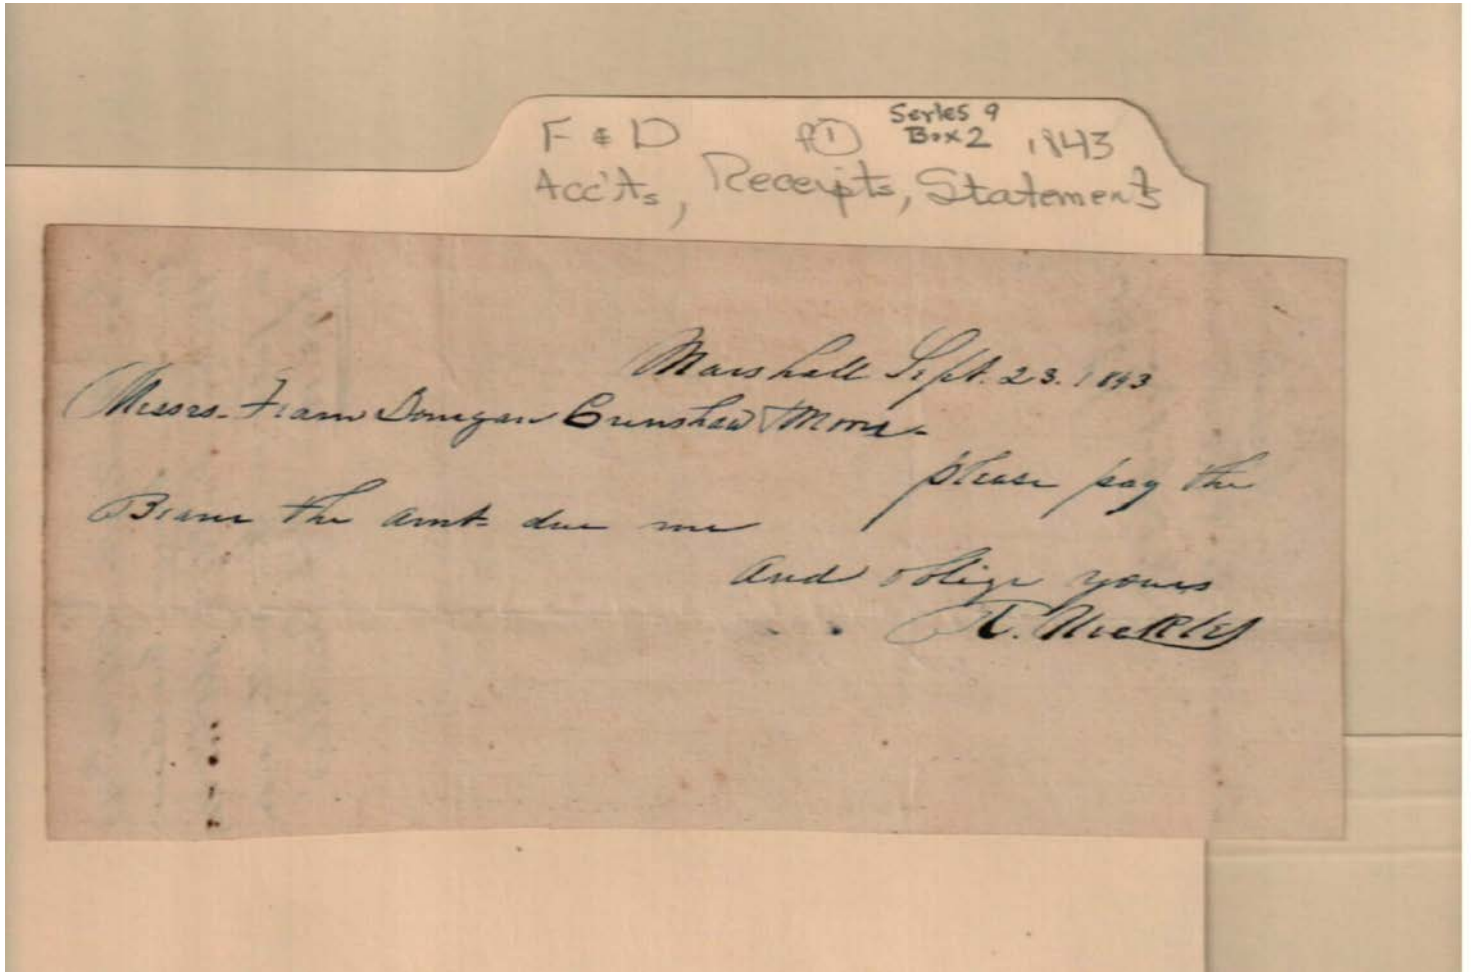 F & D P① Series 9 Box 2 1843
Acc'ts, Receipts, Statements
Marshall Sept. 23. 1843
Messrs. Fearn Donegan Crenshaw & Moore
please pay the
Bearer the amt due me
and oblige yours
Nickles